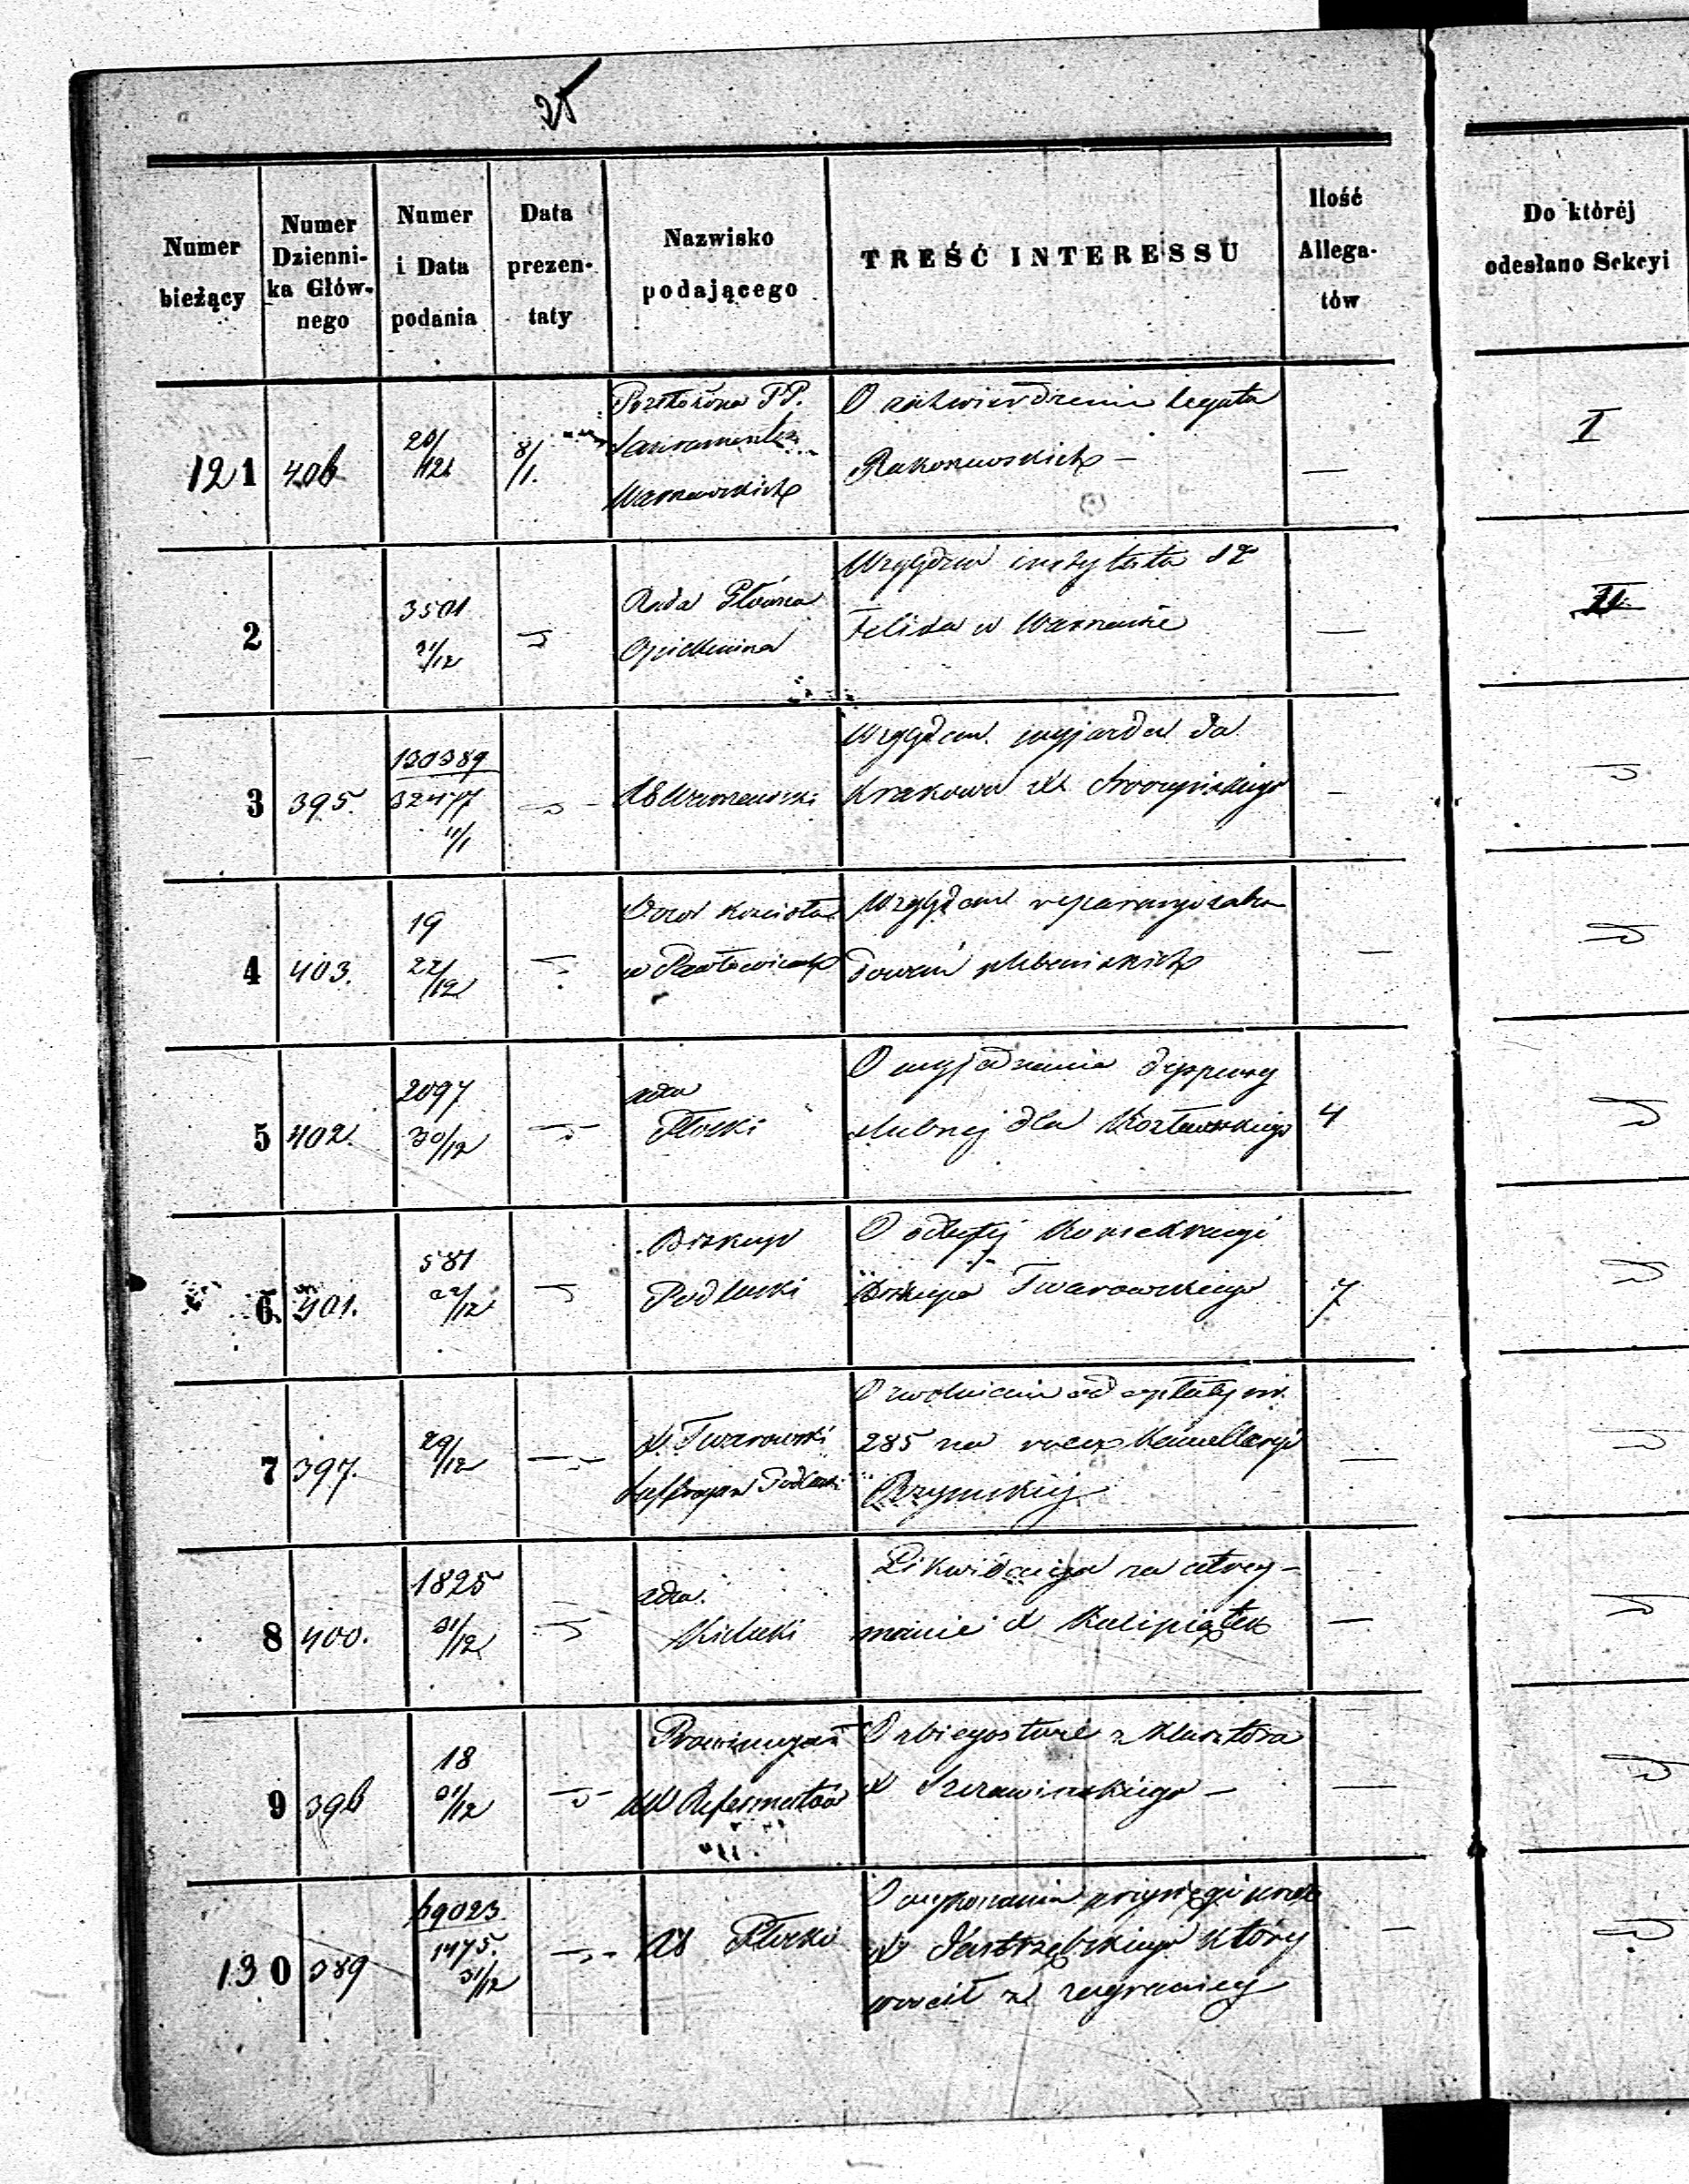 25
Numer bieżący
Numer Dzienni-
ka Głów-
nego
Numer i Data podania
Data prezen-
taty
Nazwisko podającego
TREŚĆ INTERESSU
Ilość Allega-
tów
Do któréj odesłano Sekcyi
121 406 20/12 8/1. Przełożona PP.
Sakramentek
Warszawskich
O zatwierdzenie legatu
Rakowskich –
— I
2 3501
31/12
Rada Główna
Opiekuńcza
Względem instytutu
Felixa w Warszawie
— II
3 395. 130389
32477
11/1
AB Warszawski
Względem wyjazdu do
Krakowa
–
4 403. 19
22/12
Dozór Kościoła
w Pawłowicach
Względem reparacyi zabu
dowań plebańskich
—
5 402. 2097
30/12
Adm
Płocki
O wyjednanie dyspensy
ślubnej dla Kozłowskiego
4
6. 401. 581
22/12
Biskup
Podlaski
O odbytej Konsekracyi
Biskupa Twarowskiego
7
7 397. 29/12
X. Twarowski
Suffragan Podlaski
O zwolnienie od opłaty
285 na rzecz Kancellaryi
Rzymskiej
—
8 400. 1825
31/12
adm.
Kielecki
Likwidacya za utrzy-
manie X Kulipiątek
—
9 396 18
31/12
Prowincyał
XX Reformatów
O zbiegostwie z Klasztoru
X Szczawińskiego –
—
130 389 69023
1475.
31/12
AB Płocki
O wykonanie przysięgi przez
X Jastrzębskiego który
wrócił z zagranicy
–